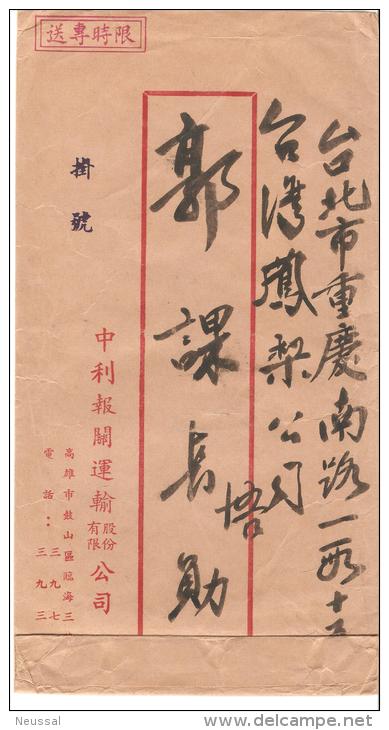 限時專送
台北市重慶南路一段十
台灣鳳梨公司
郭課長
勛
掛號
中利報關運輸股份有限公司
高雄市鼓山區臨海三
電話：三九七三九三
Neussal
www.delcampe.net